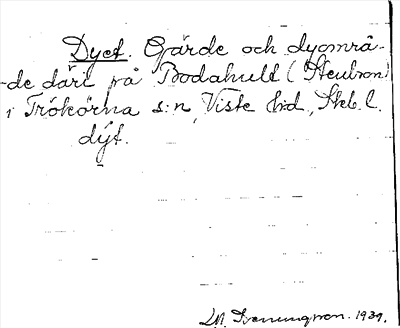 Dyet. Gärde och dyområ-
-de däri på Bodahult (Stenbron)
i Trökörna s:n, Viste hd, Skb. l.
dýt.
1939.